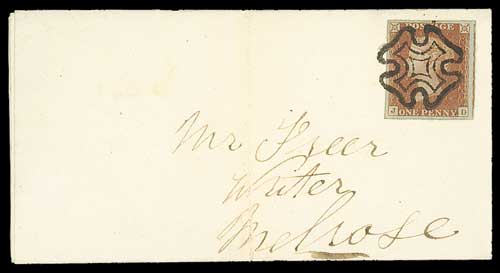 POSTAGE
J D
ONE PENNY
Mr Freer
Writer
Melrose